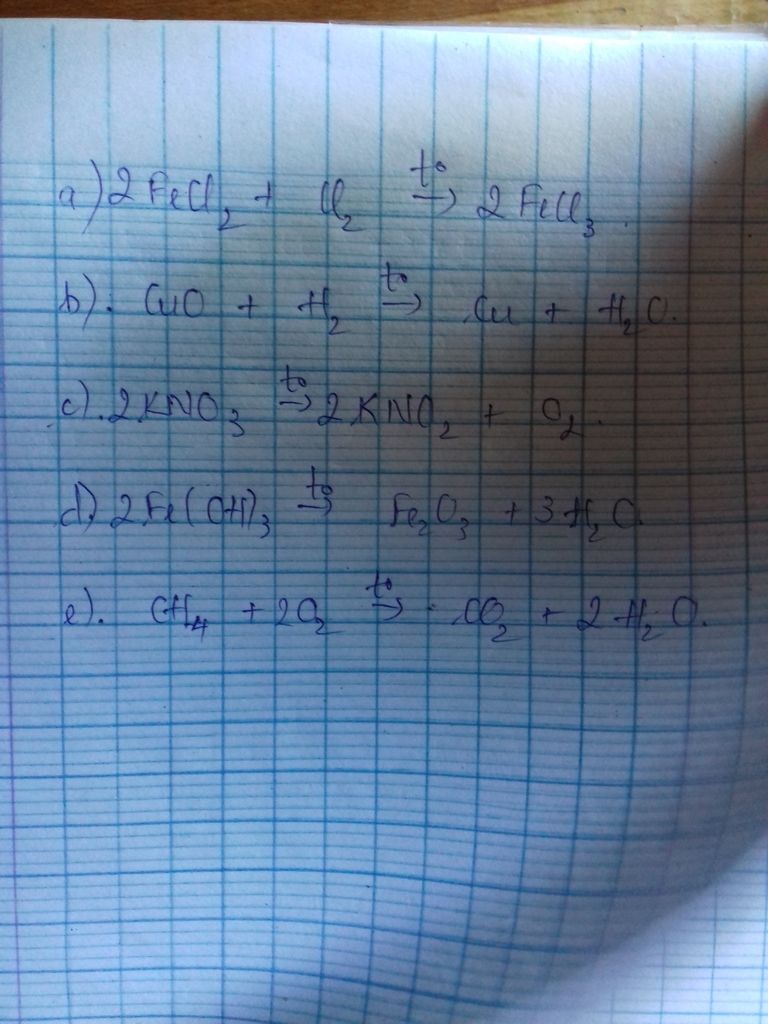 a) 2FeCl₂ + Cl₂ t° → 2FeCl₃.
b). CuO + H₂ t° → Cu + H₂O.
c). 2KNO₃ t° → 2KNO₂ + O₂.
d). 2Fe(OH)₃ t° → Fe₂O₃ + 3H₂O.
e). CH₄ + 2O₂ t° → CO₂ + 2H₂O.